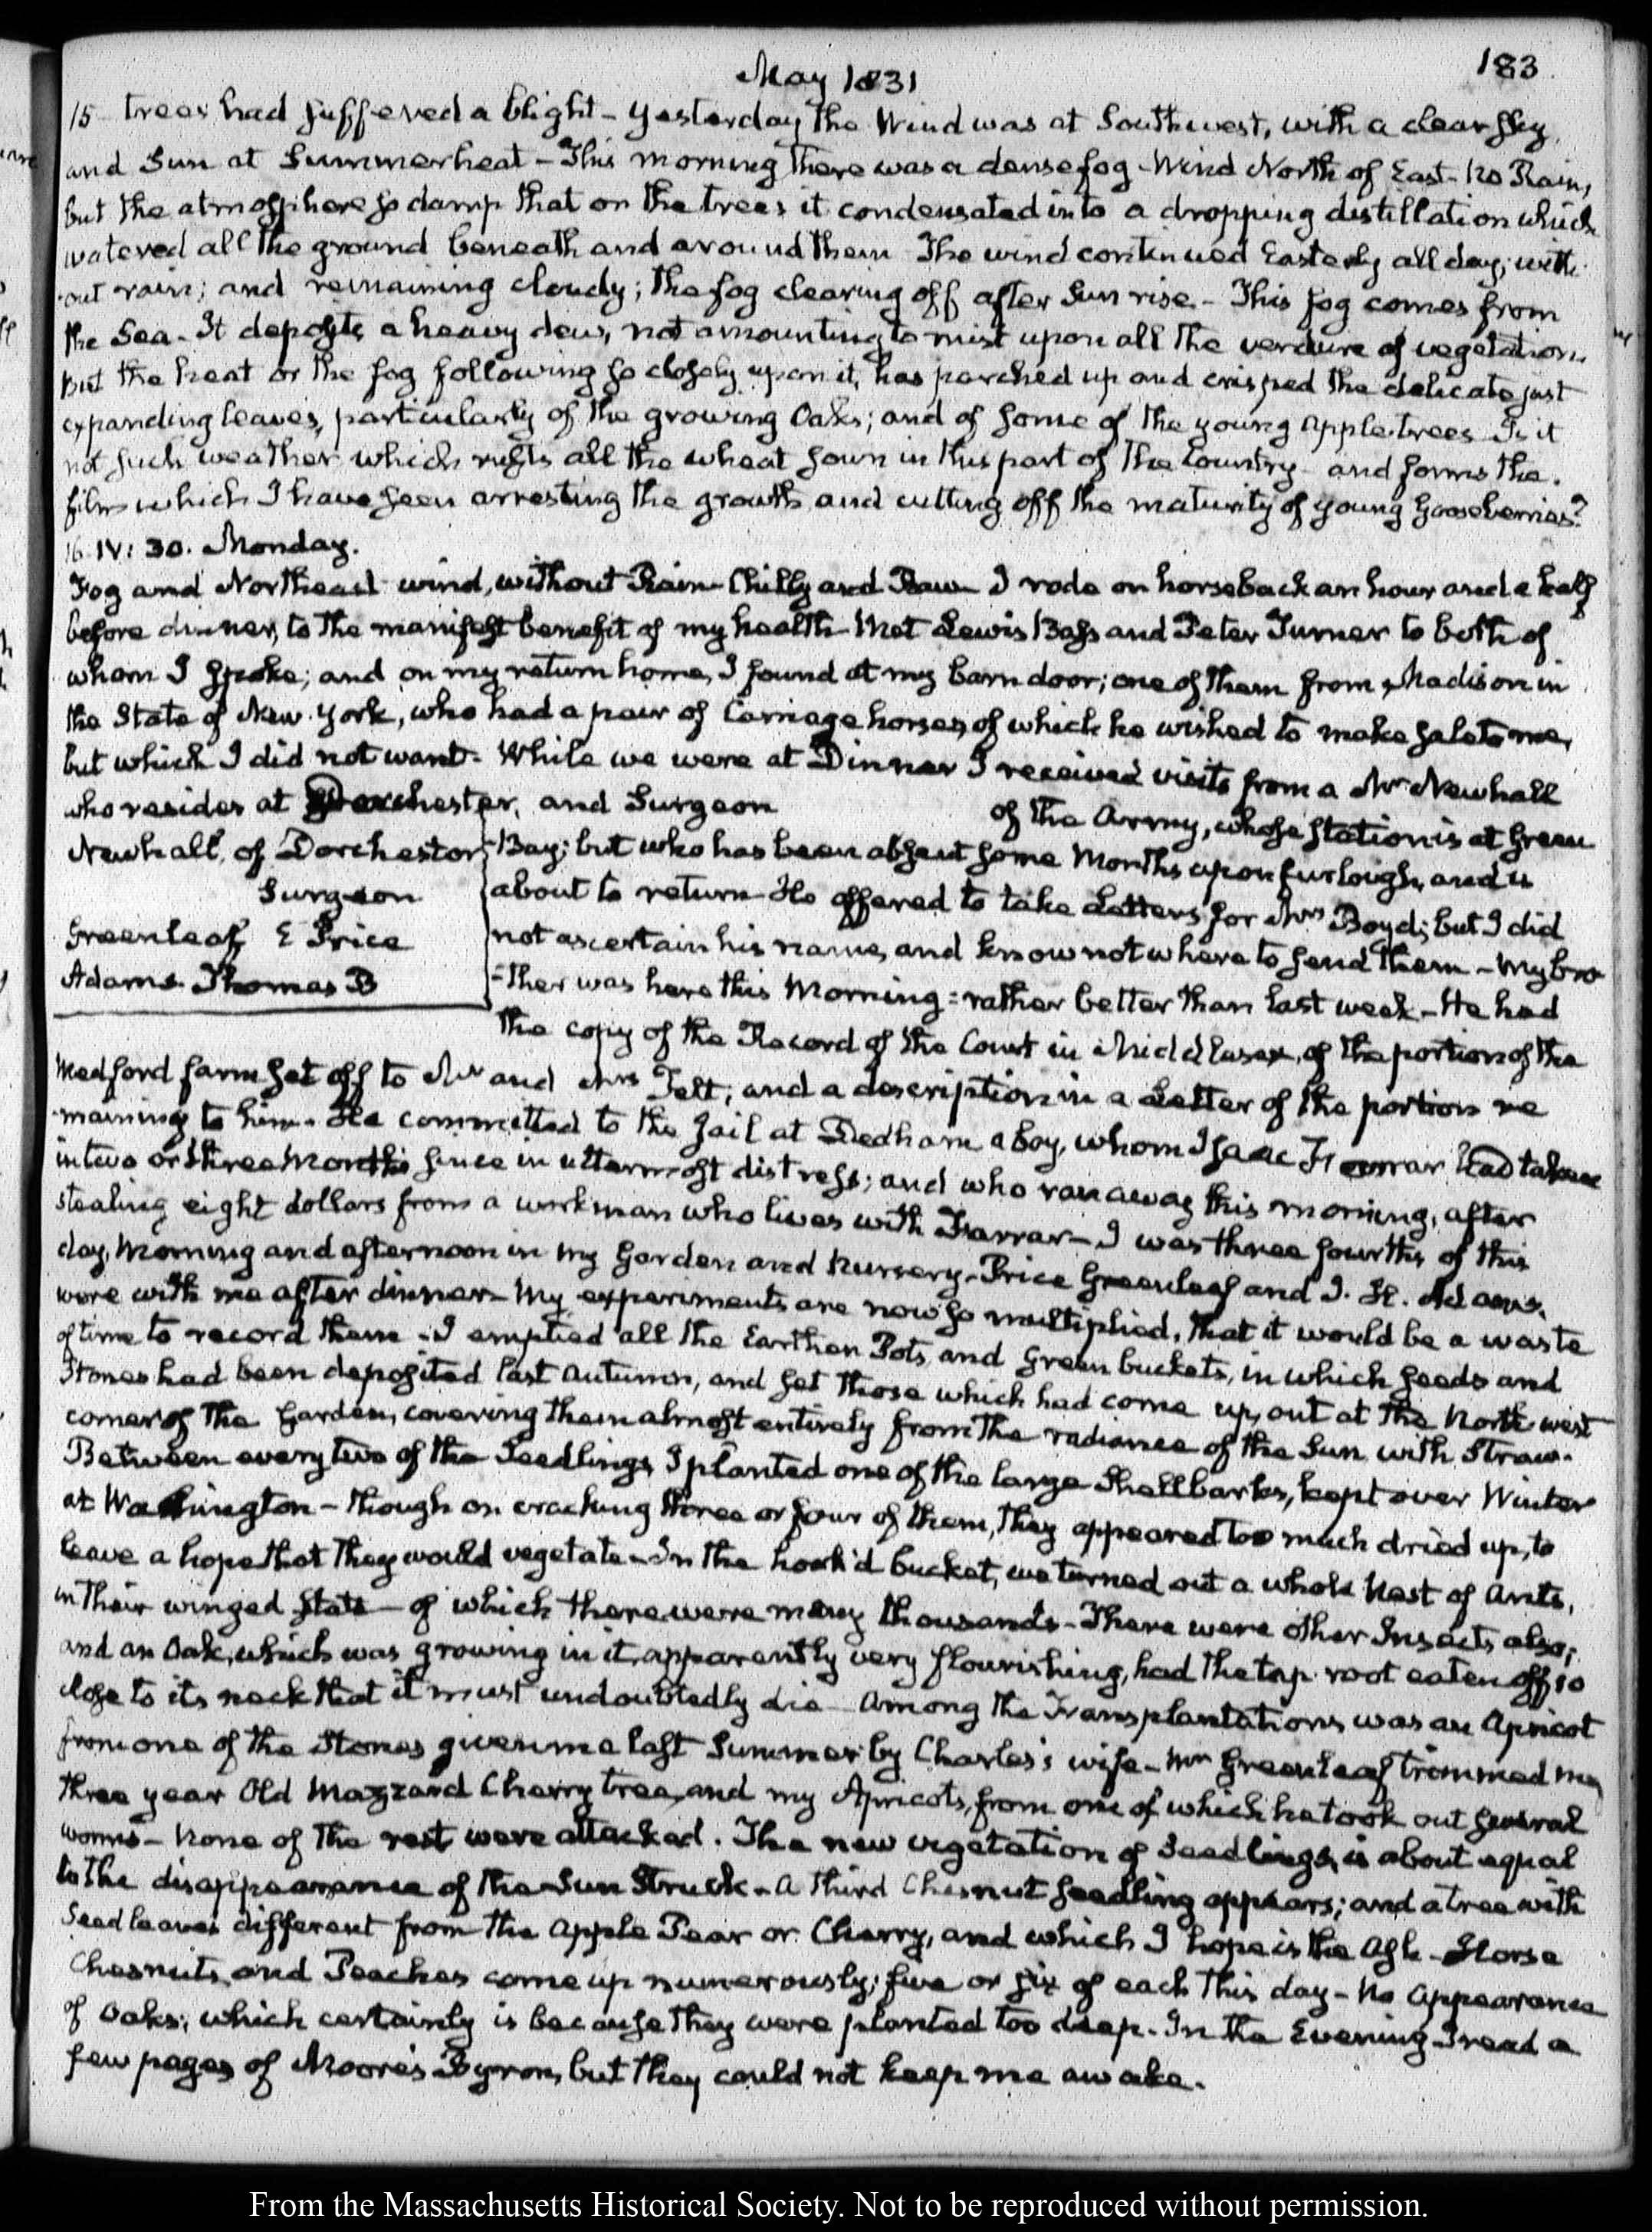 183
May 1831
15 trees had suffered a blight - yesterday the Wind was at Southwest, with a clear sky
and Sun at Summerheat - This morning there was a dense fog - Wind North of East - No Rain,
but the atmosphere so damp that on the trees it condensated into a dropping distillation which
watered all the ground beneath and around them The wind continued Easterly all day; with-
out rain; and remaining cloudy; the fog clearing off after Sun rise - This fog comes from
the Sea - It deposits a heavy dew, not amounting to mist upon all the verdure of vegetation.
But the heat or the fog following so closely upon it, has parched up and crisped the delicate just
expanding leaves, particularly of the growing Oaks; and of some of the young apple trees Is it
not such weather which rusts all the wheat sown in this part of the Country - and forms the
film which I have seen arresting the growth and cutting off the maturity of young Gooseberries?
16. IV: 30. Monday.
Fog and Northeast wind, without Rain - Chilly and Raw - I rode on horseback an hour and a half
before dinner, to the manifest benefit of my health - Met Lewis Bass and Peter Turner to both of
whom I spoke; and on my return home, I found at my barn door; one of them from Madison in
the State of New York, who had a pair of Carriage horses of which he wished to make sale to me,
but which I did not want - While we were at Dinner I received visits from a Mr. Newhall
who resides at Dorchester, and Surgeon of the Army, whose station is at Green
Newhall, of Dorchester
Surgeon
Greenleaf E Price
Adams. Thomas B
Bay; but who has been absent some Months upon furlough, and is
about to return - He offered to take Letters for Mrs Boyd; but I did
not ascertain his name, and know not where to send them - My bro-
-ther was here this Morning: rather better than last week - He had
the copy of the Record of the Court in Middlesex, of the portion of the
Medford farm set off to Mr and Mrs Felt; and a description in a Letter of the portion re
maining to him. He committed to the Jail at Dedham a boy, whom Isaac Farrar had taken
in two or three Months since in uttermost distress; and who ran away this morning, after
stealing eight dollars from a workman who lives with Farrar - I was three fourths of this
day, Morning and afternoon in my Garden and Nursery - Price Greenleaf and I. H. Adams.
were with me after dinner - My experiments are now so multiplied, that it would be a waste
of time to record them - I emptied all the Earthen Pots, and Green buckets, in which seeds and
Stones had been deposited last Autumn, and set those which had come up, out at the North west
corner of the Garden, covering them almost entirely from the radiance of the Sun with Straw.
Between every two of the Seedlings I planted one of the large Shellbarks, kept over Winter
at Washington - though on cracking three or four of them, they appeared too much dried up, to
leave a hope that they would vegetate - In the hook'd bucket, we turned out a whole Nest of Ants,
in their winged State - of which there were many thousands - There were other Insects also;
and an Oak, which was growing in it, apparently very flourishing, had the tap root eaten off so
close to its neck that it must undoubtedly die - Among the Transplantations was an Apricot
from one of the Stones given me last Summer by Charles's wife - Mr Greenleaf trimmed my
three year Old Mazzard Cherry tree, and my Apricots, from one of which he took out several
worms - None of the rest were attacked. The new vegetation of Seedlings is about equal
to the disappearance of the Sun Struck - A third Chesnut seedling appears; and a tree with
Seed leaves different from the Apple Pear or Cherry, and which I hope is the Ash - Horse
Chesnuts and Peaches come up numerously; five or six of each this day - No Appearance
of Oaks; which certainly is because they were planted too deep - In the Evening I read a
few pages of Moore's Byron, but they could not keep me awake.
From the Massachusetts Historical Society. Not to be reproduced without permission.